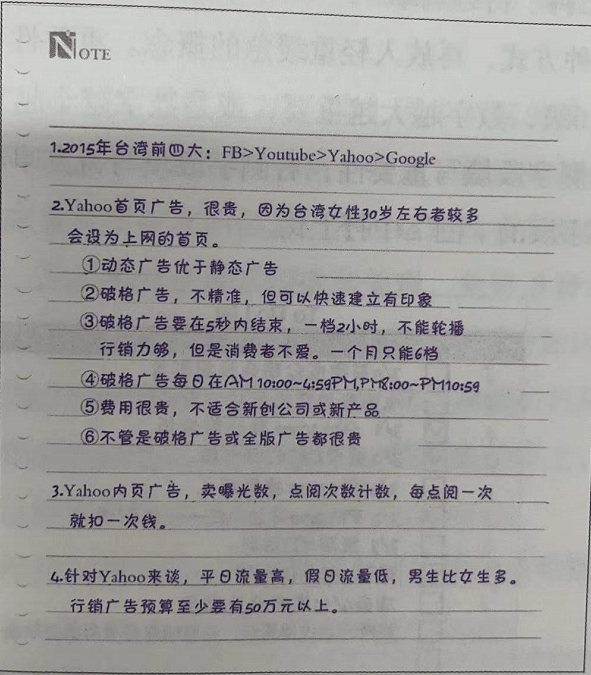 NOTE
1.2015年台湾前四大：FB>Youtube>Yahoo>Google
2.Yahoo首页广告，很贵，因为台湾女性30岁左右者较多
会设为上网的首页。
①动态广告优于静态广告
②破格广告，不精准，但可以快速建立有印象
③破格广告要在5秒内结束，一档2小时，不能轮播
行销力够，但是消费者不爱。一个月只能6档
④破格广告每日在AM 10:00~4:59PM,PM8:00~PM10:59
⑤费用很贵，不适合新创公司或新产品
⑥不管是破格广告或全版广告都很贵
3.Yahoo内页广告，卖曝光数，点阅次数计数，每点阅一次
就扣一次钱。
4.针对Yahoo来谈，平日流量高，假日流量低，男生比女生多。
行销广告预算至少要有50万元以上。